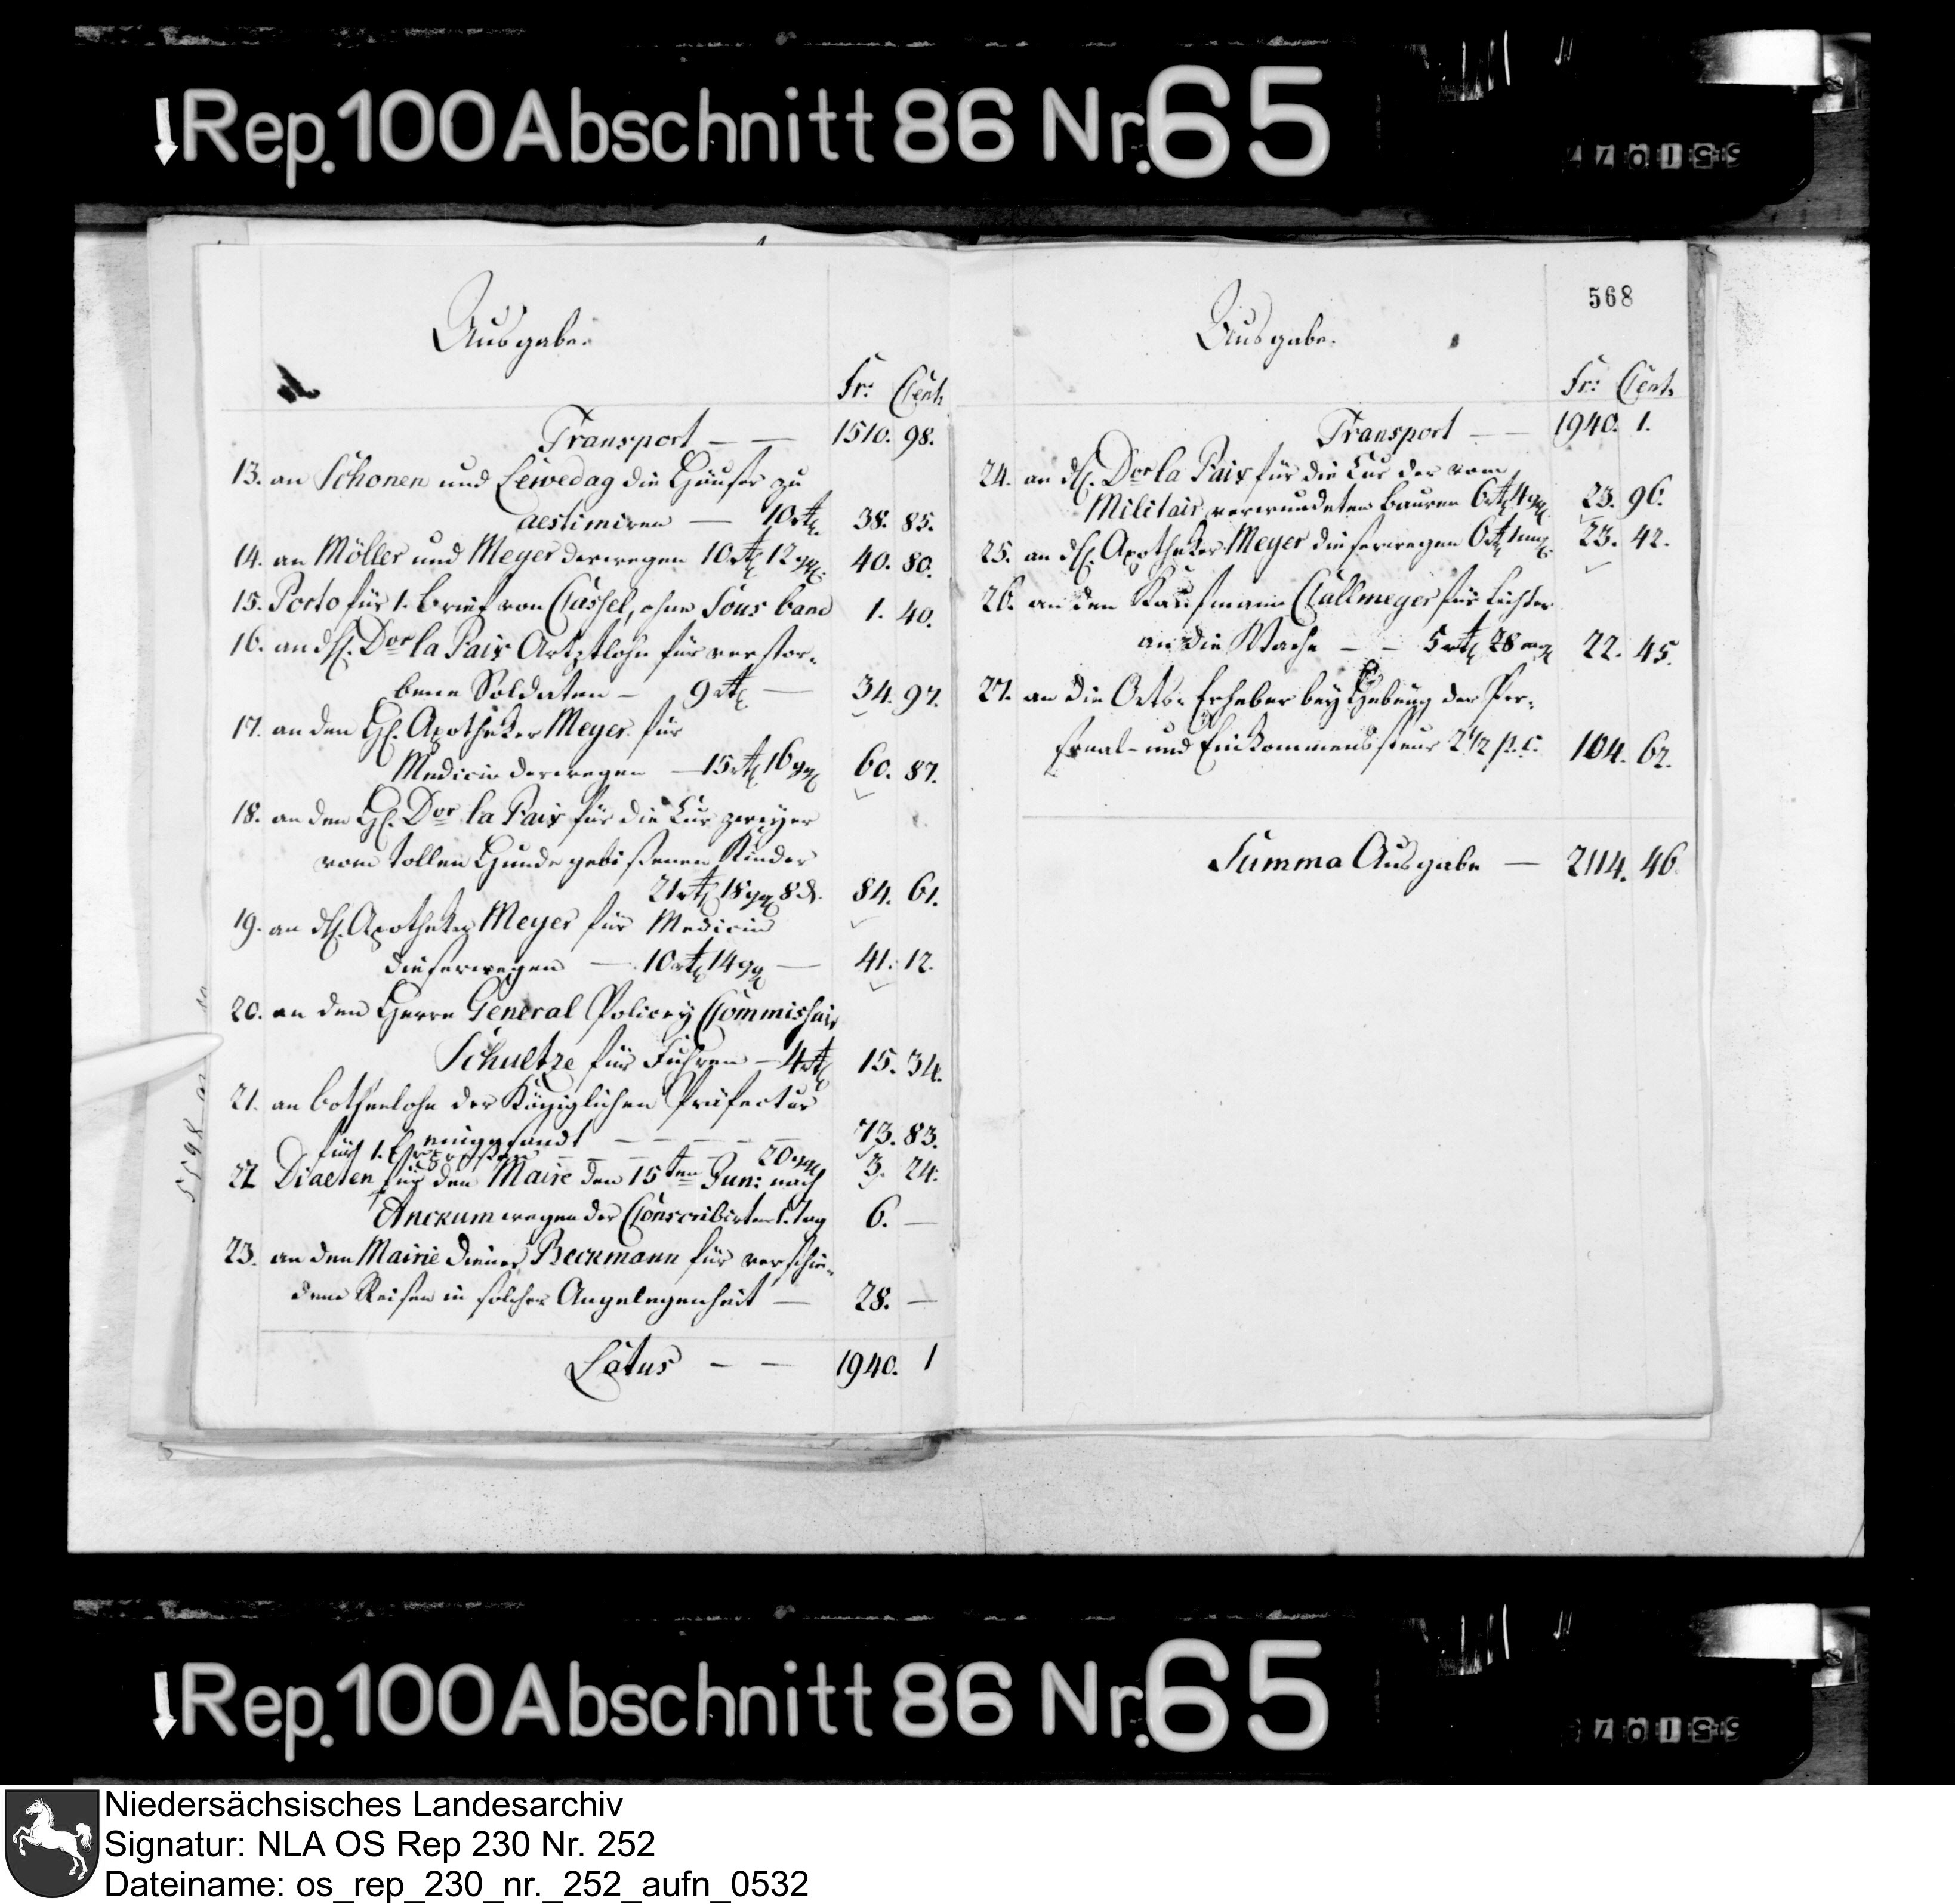 Rep. 100 Abschnitt 86 Nr. 65
Ausgabe.
Fr: Cent.
Transport — — 1510. 98.
13. an Schonen und Lewedag die Häuser zu
aestimiren — 10 rt. 38. 85.
14. an Möller und Meyer derwegen 10 rt 12 gg. 40. 80.
15. Porto für 1. Brief von Cassel, ohne Sous band 1. 40.
16. an H. Dor la Paix Artztlohn für verstor-
bene Soldaten — 9 rt — 34. 97.
17. an den H. Apotheker Meyer für
Medicin derwegen — 15 rt 16 gg 60. 87.
18. an den H. Dor la Paix für die Cur zweyer
vom tollen Hunde gebissenen Kinder
21 rt 18 gg 8 d. 84. 61.
19. an H. Apotheker Meyer für Medicin
dieserwegen — 10 rt 14 gg — 41. 12.
20. an den Herrn General Policey Commissair
Schultze für Fuhren — 4 rt 15. 34.
21. an Bothenlohn der Königlichen Präfectur
eingesandt — — — — 73. 83.
für 1. Expressen — — — 20 gg 3. 24.
22. Diaeten für den Maire den 15ten Jun: nach
Anckum wegen der Conscribirten 1. tag 6. —
23. an den Mairie diener Beckmann für verschie-
dene Reisen in solcher Angelegenheit — 28. —
Latus — — 1940. 1
568
Ausgabe.
Fr: Cent.
Transport — — 1940. 1.
24. an H. Dor la Paix für die Cur der vom
Militair verwundeten Bauren 6 rt 4 gg. 23. 96.
25. an H. Apotheker Meyer dieserwegen 6 rt 1 mg. 23. 42.
26. an den Kaufmann Callmeyer für Lichter
an die Wache — — 5 rt 28 mg 22. 45.
27. an die Orts-Erheber bey Hebung der Per-
sonal- und Einkommensteur 2 1/2 p. c. 104. 62.
Summa Ausgabe — 2114. 46.
Rep. 100 Abschnitt 86 Nr. 65
Niedersächsisches Landesarchiv
Signatur: NLA OS Rep 230 Nr. 252
Dateiname: os_rep_230_nr._252_aufn_0532